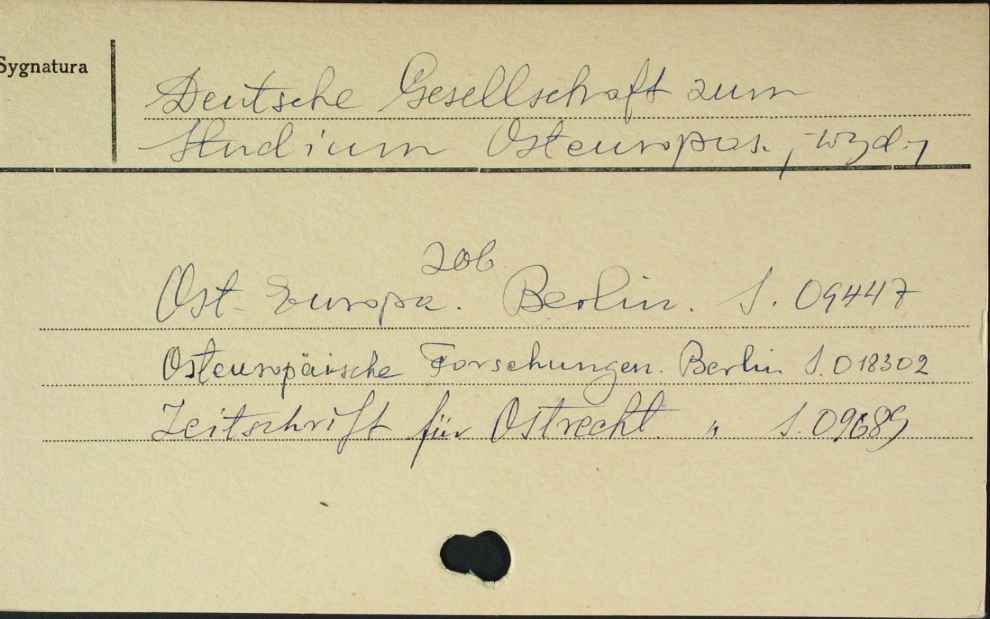 Sygnatura
Deutsche Gesellschaft zum
Studium Osteuropas, wyd.
zob.
Ost-Europa. Berlin. S. 09447
Osteuropäische Forschungen. Berlin S. 018302
Zeitschrift für Ostrecht. " S. 09689